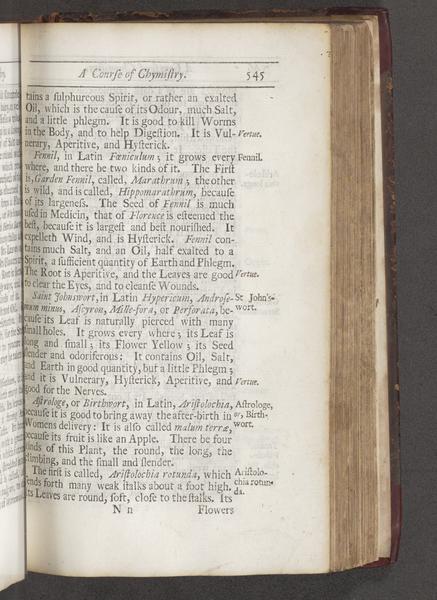 A Courſe of Chymiſtry. 545
tains a ſulphureous Spirit, or rather an exalted
Oil, which is the cauſe of its Odour, much Salt,
and a little phlegm. It is good to kill Worms
in the Body, and to help Digeſtion. It is Vul- Vertue.
nerary, Aperitive, and Hyſterick.
Fennil, in Latin Fœniculum; it grows every Fennil.
where, and there be two kinds of it. The Firſt
is, Garden Fennil, called, Marathrum; the other
is wild, and is called, Hippomarathrum, becauſe
of its largeneſs. The Seed of Fennil is much
uſed in Medicin, that of Florence is eſteemed the
beſt, becauſe it is largeſt and beſt nouriſhed. It
expelleth Wind, and is Hyſterick. Fennil con-
tains much Salt, and an Oil, half exalted to a
Spirit, a ſufficient quantity of Earth and Phlegm.
The Root is Aperitive, and the Leaves are good Vertue.
to clear the Eyes, and to cleanſe Wounds.
Saint Johnswort, in Latin Hypericum, Androſe- St John's-
mum minus, Aſcyron, Mille-fora, or Perforata, be- wort.
cauſe its Leaf is naturally pierced with many
ſmall holes. It grows every where; its Leaf is
long and ſmall; its Flower Yellow; its Seed
ſlender and odoriferous: It contains Oil, Salt,
and Earth in good quantity, but a little Phlegm;
and it is Vulnerary, Hyſterick, Aperitive, and Vertue.
good for the Nerves.
Aſtrologe, or Birthwort, in Latin, Ariſtolochia, Aſtrologe,
becauſe it is good to bring away the after-birth in or, Birth-
Womens delivery: It is alſo called malum terræ, wort.
becauſe its fruit is like an Apple. There be four
kinds of this Plant, the round, the long, the
climbing, and the ſmall and ſlender.
The firſt is called, Ariſtolochia rotunda, which Ariſtolo-
ſends forth many weak ſtalks about a foot high. chia rotun-
Its Leaves are round, ſoft, cloſe to the ſtalks. Its da.
N n Flowers